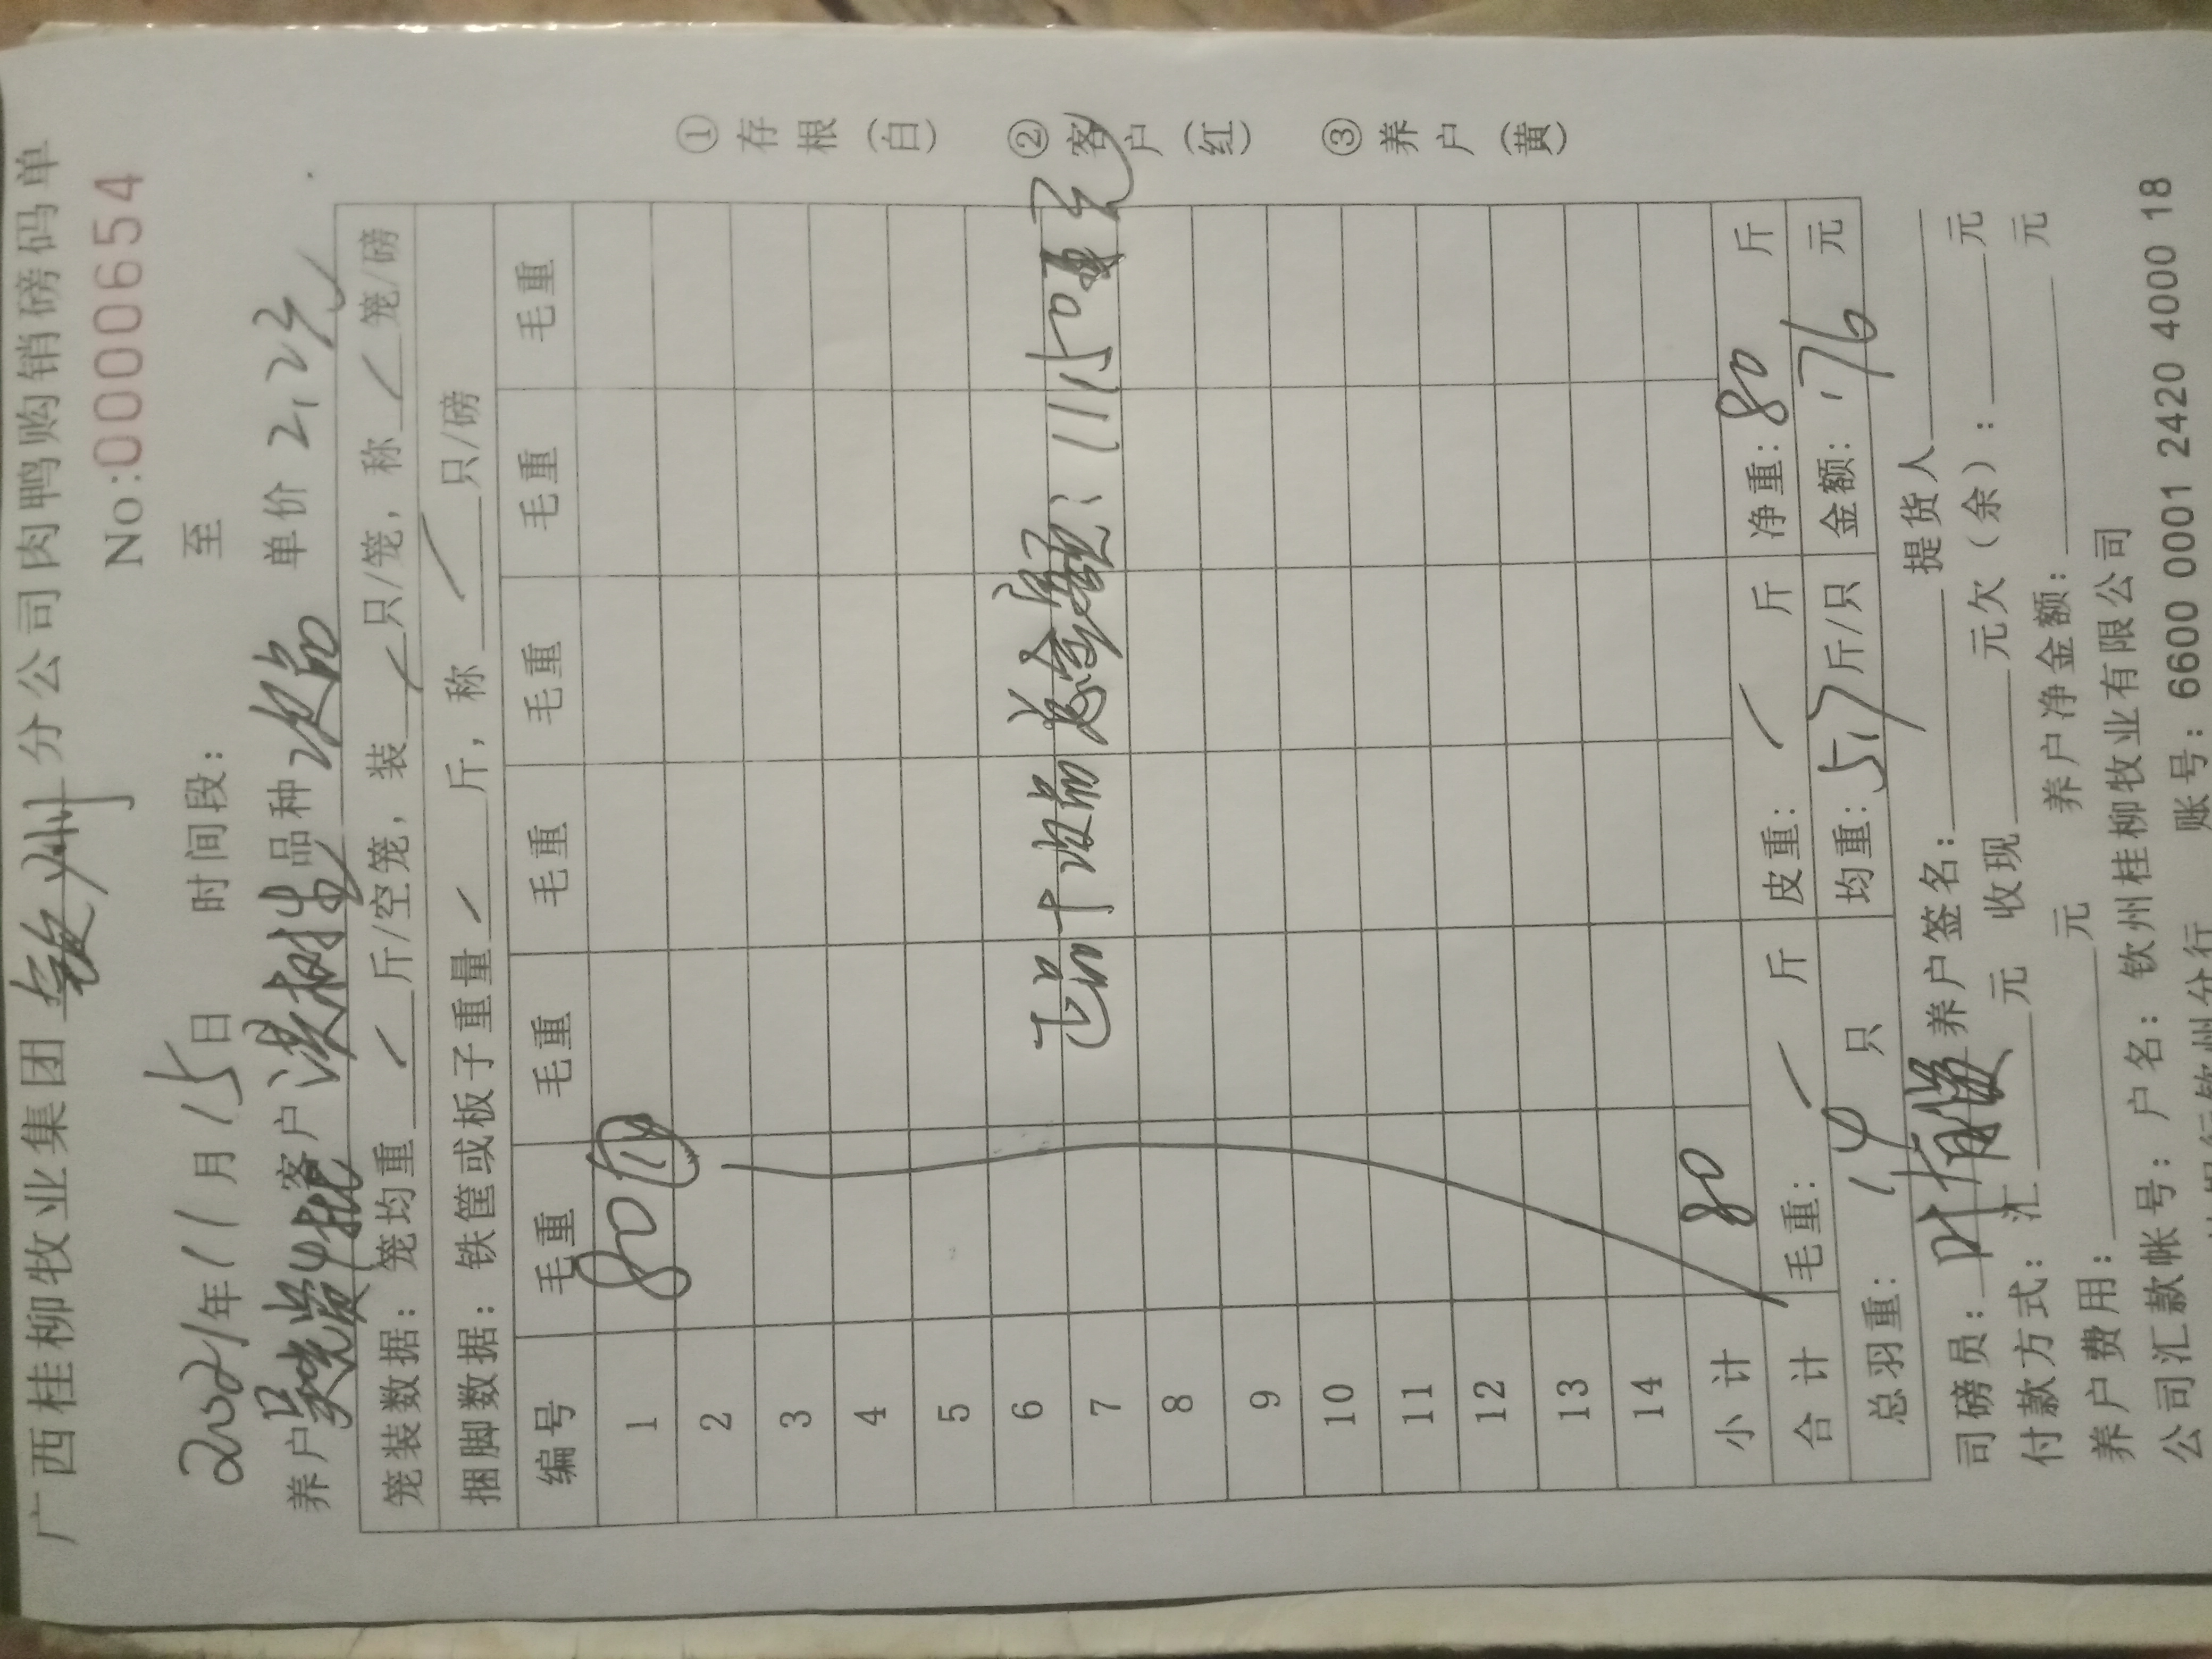 广西桂柳牧业集团 钦州 分公司肉鸭购销磅码单
No:0000654
2021年11月15日 时间段: 至
养户 客户 洪树生 品种 次品 单价 2.2元
笼装数据: 笼均重 斤/空笼, 装 只/笼, 称 笼/磅
捆脚数据: 铁筐或板子重量 斤, 称 只/磅
编号 毛重 毛重 毛重 毛重 毛重 毛重
1 80
2
3
4
5
6
7
8
9
10
11
12
13
14
小计 80
合计 毛重: 斤 皮重: 斤 净重: 80 斤
总羽重: 14 只 均重: 5.7 斤/只 金额: 176 元
司磅员: 养户签名: 提货人
付款方式: 汇 元 收现 元欠(余): 元
养户费用: 元 养户净金额: 元
公司汇款帐号: 户名: 钦州桂柳牧业有限公司
钦州分行 账号: 6600 0001 2420 4000 18
①存根(白) ②客户(红) ③养户(黄)